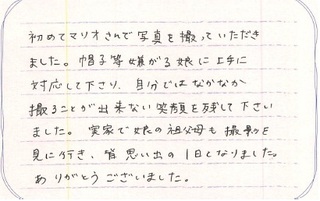 初めてマリオさんで写真を撮っていただき
ました。帽子等嫌がる娘に上手に
対応して下さり、自分ではなかなか
撮ることが出来ない笑顔を残して下さい
ました。実家で娘の祖父母も撮影を
見に行き、皆思い出の1日となりました。
ありがとうございました。